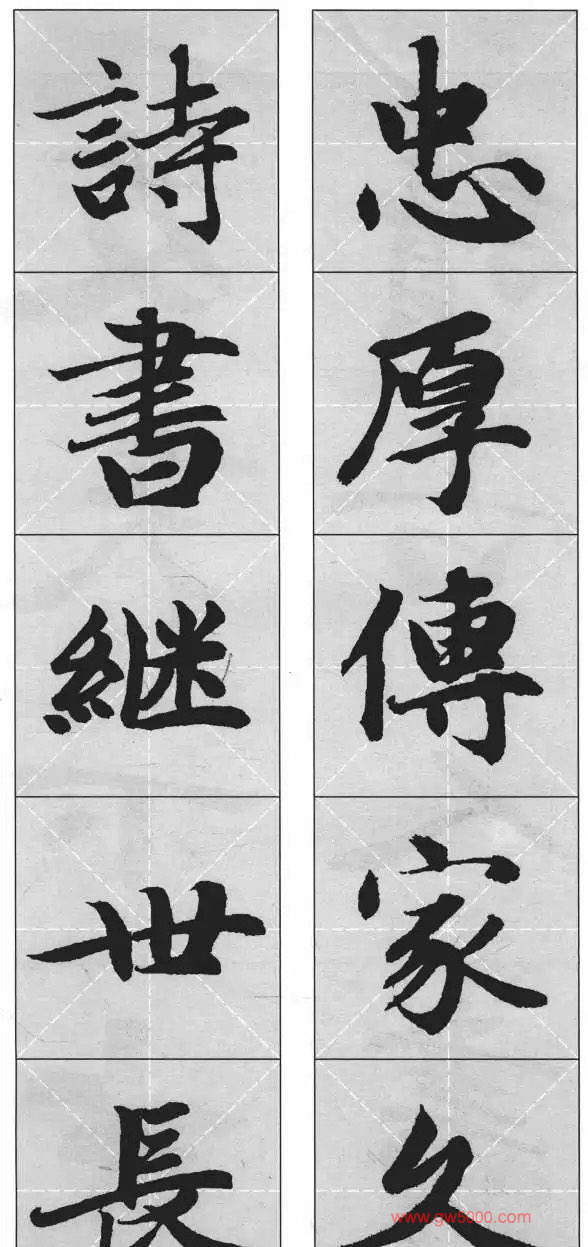 忠厚傳家久
詩書継世長
www.gw5000.com